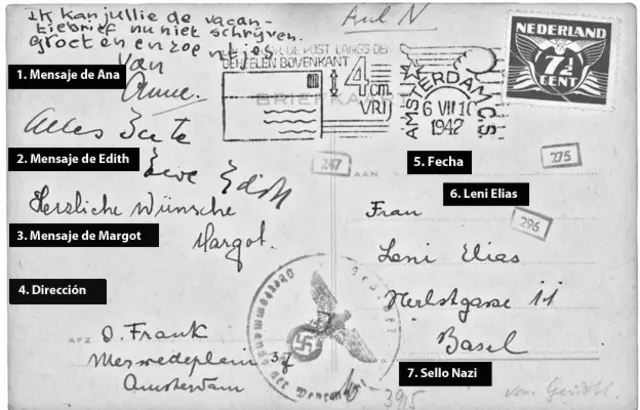 Ik kan jullie de vacan-
tiebrief nu niet schrijven.
groeten en zoentjes
van
Anne.
1. Mensaje de Ana
Alles Gute
2. Mensaje de Edith
Eure Edith
Herzliche Wünsche
3. Mensaje de Margot
Margot.
4. Dirección
AFZ.
O. Frank
Merwedeplein 37
Amsterdam
DE POST LANGS DE
BOVENKANT
4 cm
VRIJ
BRIEFKAART
AMSTERDAM C.S.
6 VII 10
1942
NEDERLAND
7½
CENT
247
AAN
5. Fecha
275
6. Leni Elias
296
Frau
Leni Elias
Herbstgasse 11
Basel
7. Sello Nazi
Oberkommando der Wehrmacht
3915